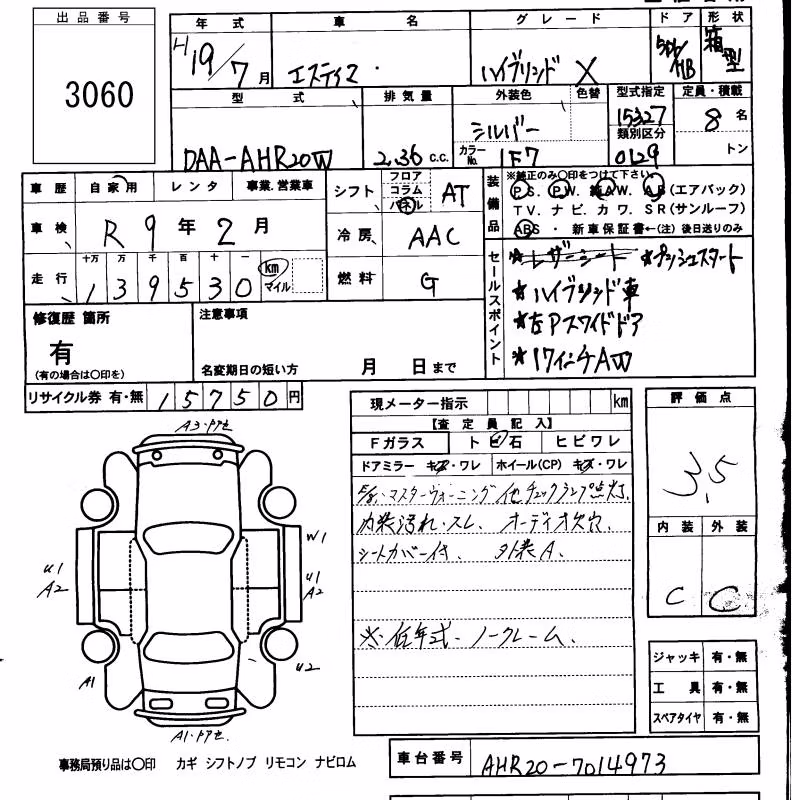 出品番号
3060
年式 車名 グレード ドア 形状
H19/7月 エスティマ ハイブリッド X 5D/HB 箱型
型式 排気量 外装色 色替 型式指定 定員・積載
DAA-AHR20W 2.36 c.c. シルバー 15327 8名
カラーNo. 1F7 類別区分 0129 トン
車歴 自家用 レンタ 事業.営業車
シフト フロア コラム パネル AT
車検 R9年2月
冷房 AAC
走行 十万 万 千 百 十 一
139530 km マイル
燃料 G
装備品
※純正のみ○印をつけて下さい。
P.S. P.W. 純A.W. A.B(エアバック)
TV. ナビ. カワ. SR(サンルーフ)
ABS ・ 新車保証書←(注)後日送りのみ
セールスポイント
★レザーシート ★プッシュスタート
★ハイブリッド車
★左Pスライドドア
★17インチAW
修復歴 箇所
有
(有の場合は○印を)
注意事項
名変期日の短い方 月 日まで
リサイクル券 有・無 15750円
現メーター指示 km
【査定員記入】
Fガラス トビ石 ヒビワレ
ドアミラー キズ・ワレ ホイール(CP) キズ・ワレ
マスターウォーニング 他チェックランプ点灯.
内装汚れ・スレ. オーディオ欠穴
シートカバー付. 外装A.
※. 低年式・ノークレーム.
評価点
3.5
内装 外装
C C
A3・アセ
W1
U1
A2
U1
A2
U2
A1
A1・アセ.
ジャッキ 有・無
工具 有・無
スペアタイヤ 有・無
事務局預り品は○印 カギ シフトノブ リモコン ナビロム
車台番号 AHR20-7014973